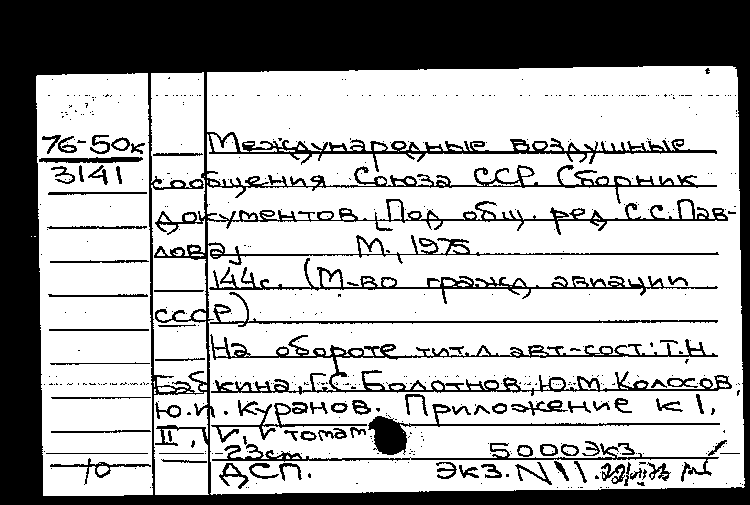 76-50к Международные воздушные
3141 сообщения Союза ССР. Сборник
документов. [Под общ. ред. С.С.Пав-
лова] М., 1975.
144с. (М-во гражд. авиации
СССР).
На обороте тит.л. авт.-сост.: Т.Н.
Бабкина, Г.С.Болотнов, Ю.М.Колосов,
Ю.п. Куранов. Приложение к I,
II, IV, V томам
23см. 5000экз.
10 ДСП. Экз. N 11.